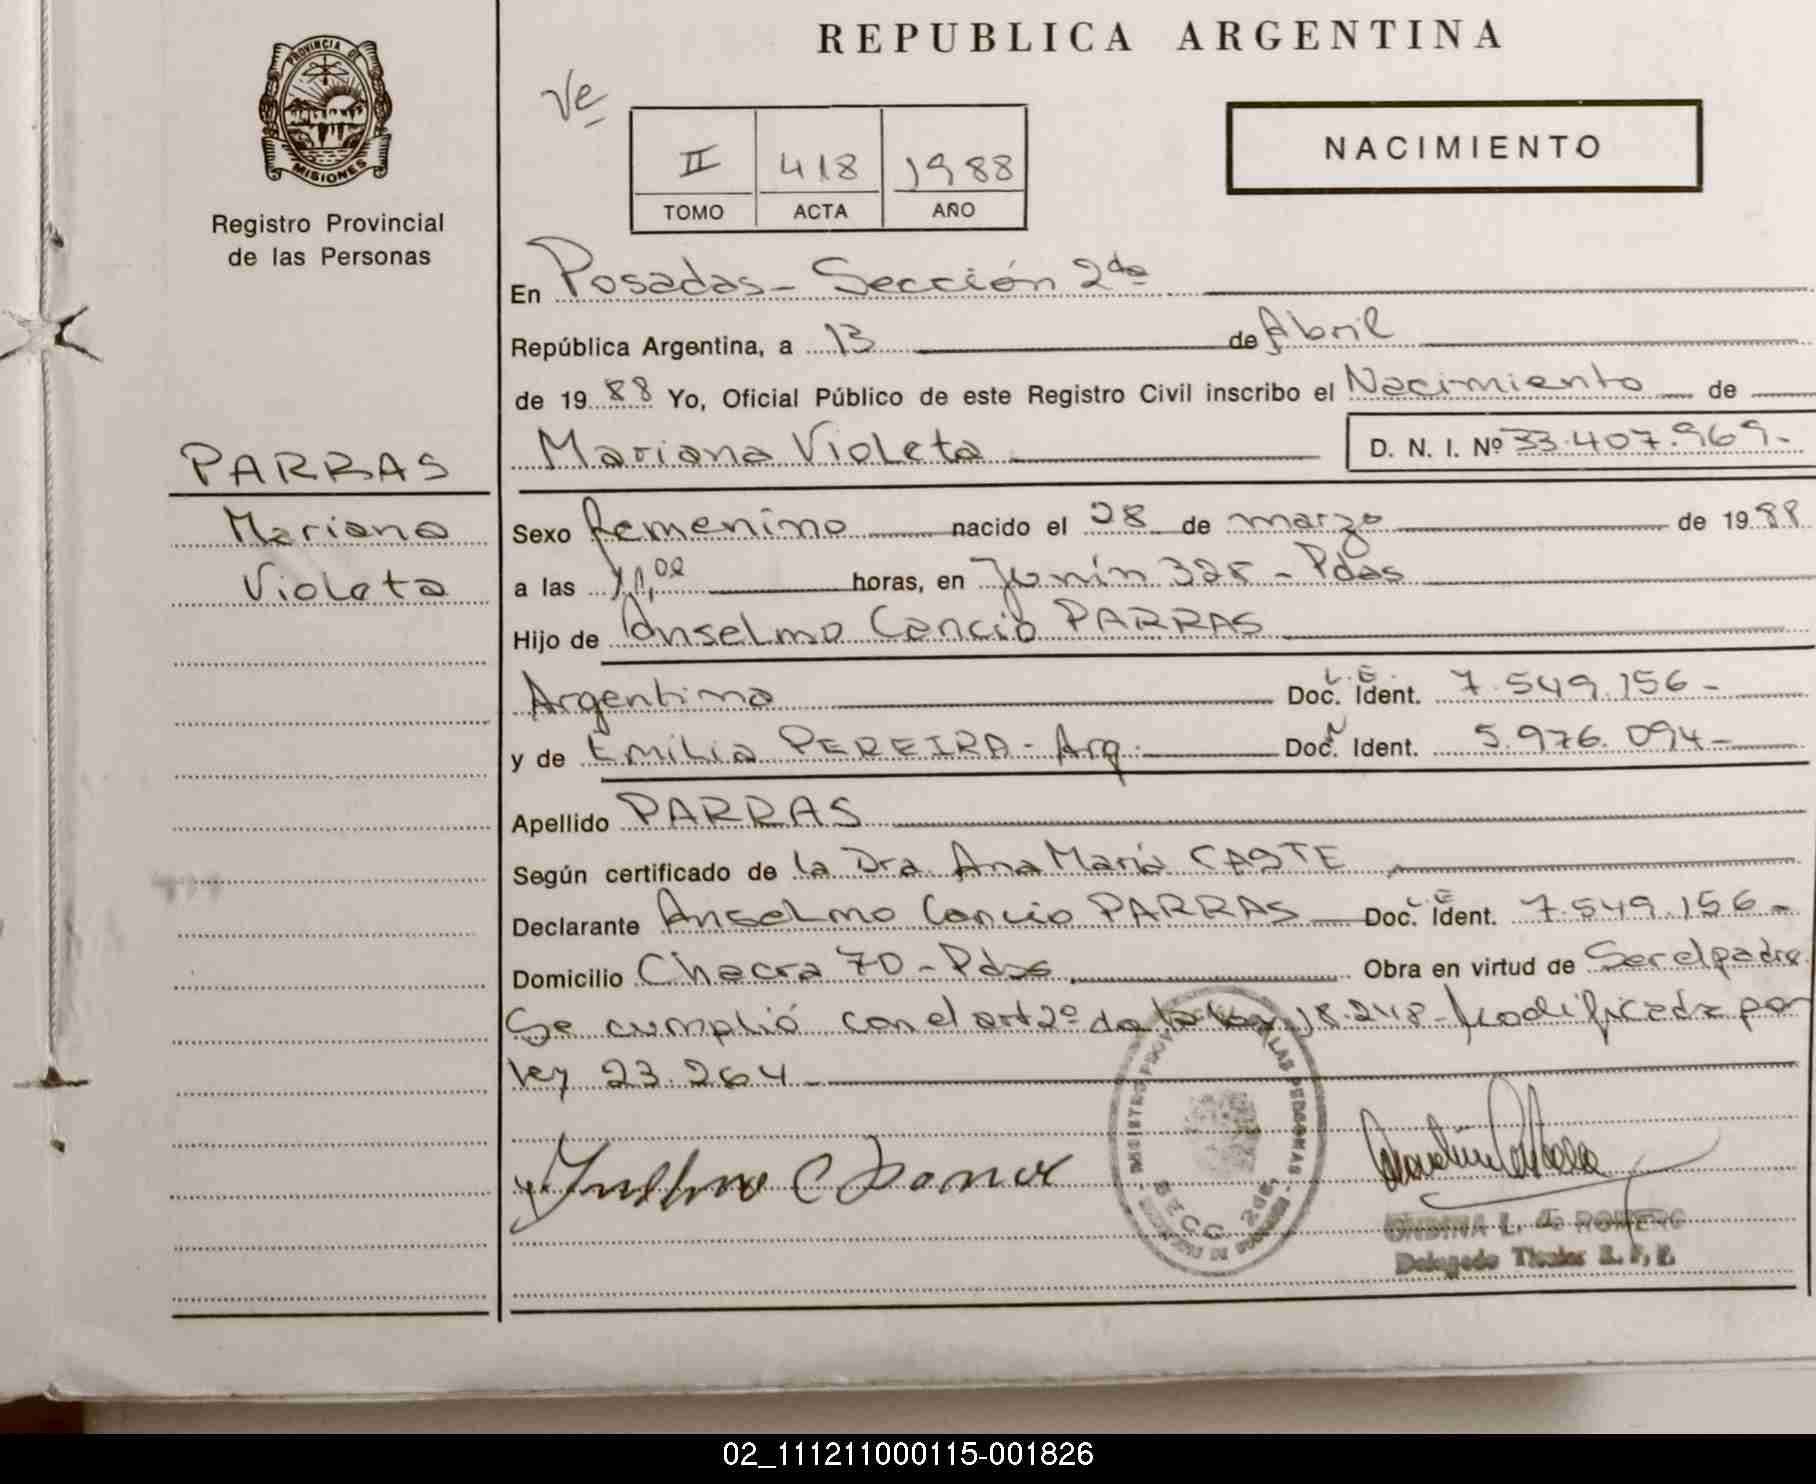 REPUBLICA ARGENTINA
PROVINCIA DE
MISIONES
Registro Provincial
de las Personas
Ve
II 418 1988
TOMO ACTA AÑO
NACIMIENTO
En Posadas - Sección 2da
República Argentina, a 13 de Abril
de 1988 Yo, Oficial Público de este Registro Civil inscribo el Nacimiento de
Mariana Violeta D. N. I. Nº 33.407.969.-
PARRAS
Mariana
Violeta
Sexo femenino nacido el 28 de marzo de 1988
a las 11,00 horas, en Junín 328 - Pdas
Hijo de Anselmo Cancio PARRAS
Argentino L.E. Doc. Ident. 7.549.156-
y de Emilia PEREIRA - Arg. Doc. Ident. 5.976.094-
Apellido PARRAS
Según certificado de la Dra. Ana María CASTE
Declarante Anselmo Cancio PARRAS L.E. Doc. Ident. 7.549.156-
Domicilio Chacra 70 - Pdas Obra en virtud de Ser el padre
Se cumplió con el art 2º de la ley 18.248 - Modificada por
ley 23.264
SECC. 2da.
ONDINA L. de ROMERO
Delegado Titular R. P. P.
02_111211000115-001826